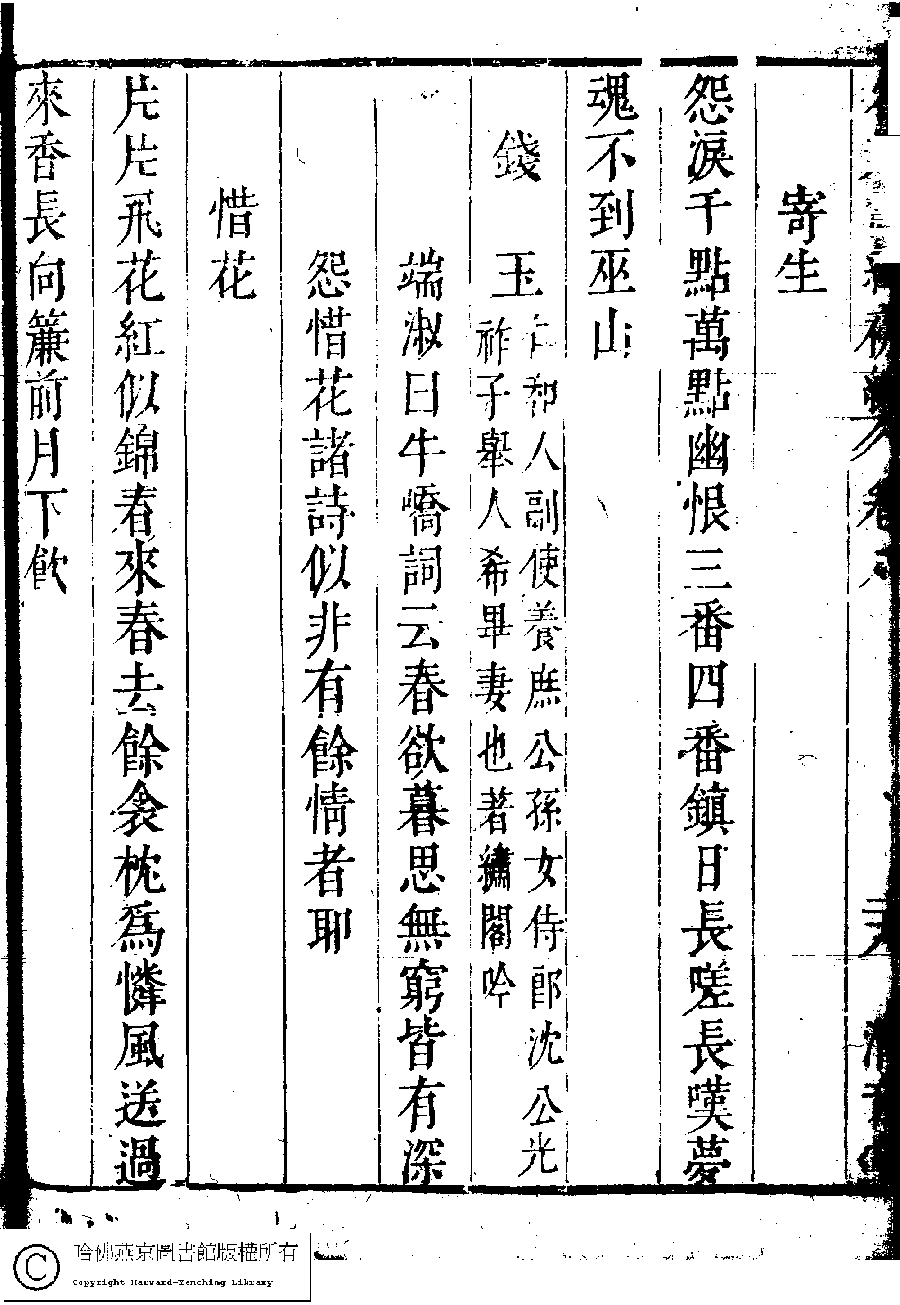 寄生
怨淚千點萬點幽恨三番四番鎮日長嗟長嘆夢
魂不到巫山
錢玉
仁和人副使養庶公孫女侍郎沈公光
祚子舉人希畢妻也著繡閣吟
端淑曰牛嶠詞云春欲暮思無窮皆有深
怨惜花諸詩似非有餘情者耶
惜花
片片飛花紅似錦春來春去餘衾枕爲憐風送過
來香長向簾前月下飲
哈佛燕京圖書館版權所有
Copyright Harvard-Yenching Library